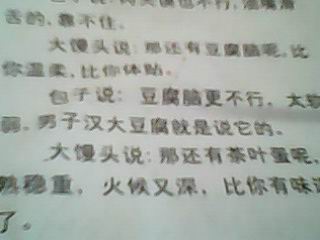 舌的,靠不住。
大馒头说:那还有豆腐脑呢,比
你温柔,比你体贴。
包子说:豆腐脑更不行,太软
弱,男子汉大豆腐就是说它的。
大馒头说:那还有茶叶蛋呢,
熟稳重,火候又深,比你有味
了。